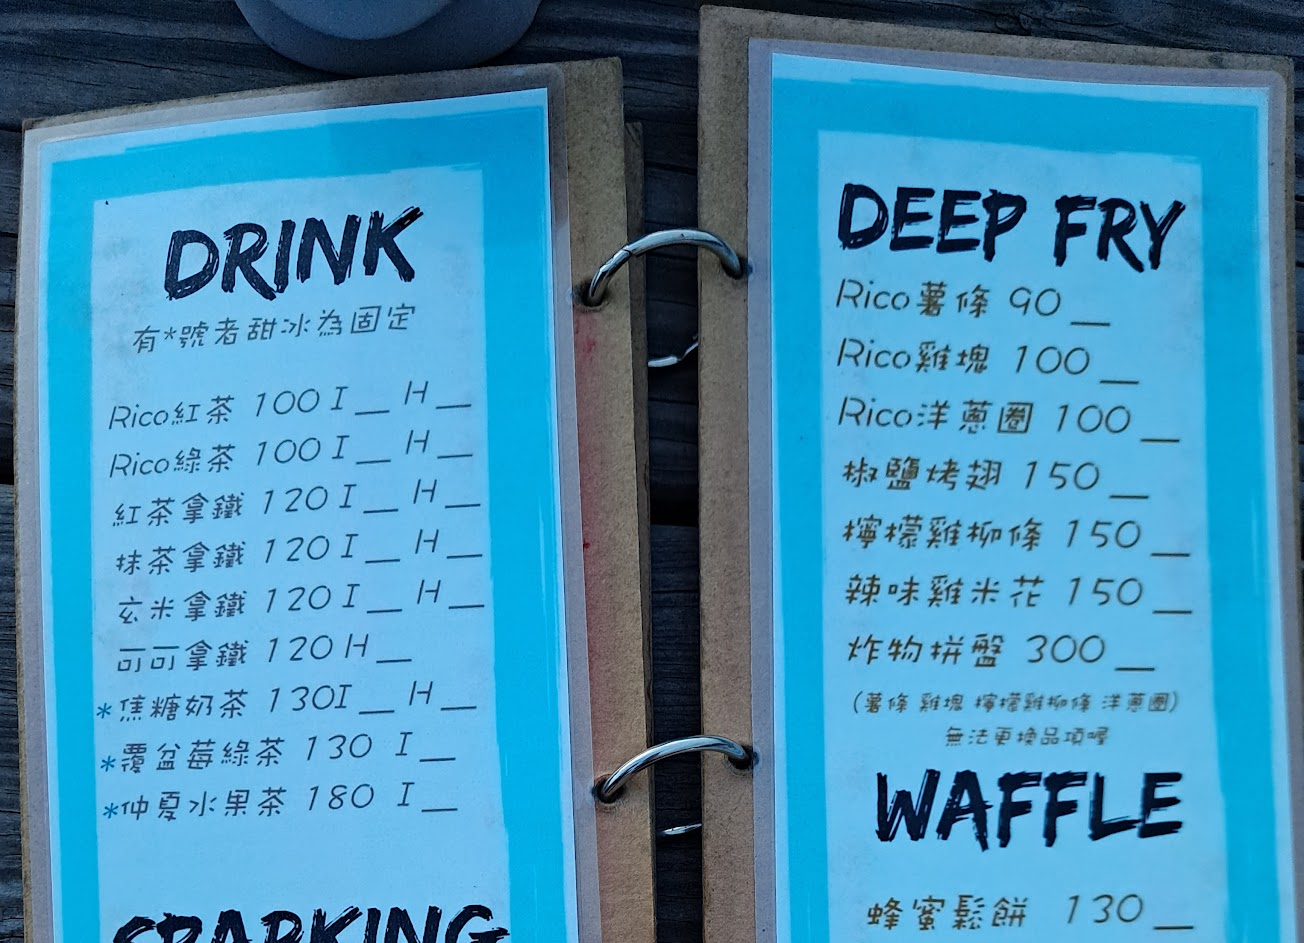 DRINK
有*號者甜冰為固定
Rico紅茶 100 I__ H__
Rico綠茶 100 I__ H__
紅茶拿鐵 120 I__ H__
抹茶拿鐵 120 I__ H__
玄米拿鐵 120 I__ H__
可可拿鐵 120 H__
*焦糖奶茶 130I__ H__
*覆盆莓綠茶 130 I__
*仲夏水果茶 180 I__
SPARKING
DEEP FRY
Rico薯條 90__
Rico雞塊 100__
Rico洋蔥圈 100__
椒鹽烤翅 150__
檸檬雞柳條 150__
辣味雞米花 150__
炸物拼盤 300__
(薯條 雞塊 檸檬雞柳條 洋蔥圈)
無法更換品項喔
WAFFLE
蜂蜜鬆餅 130__